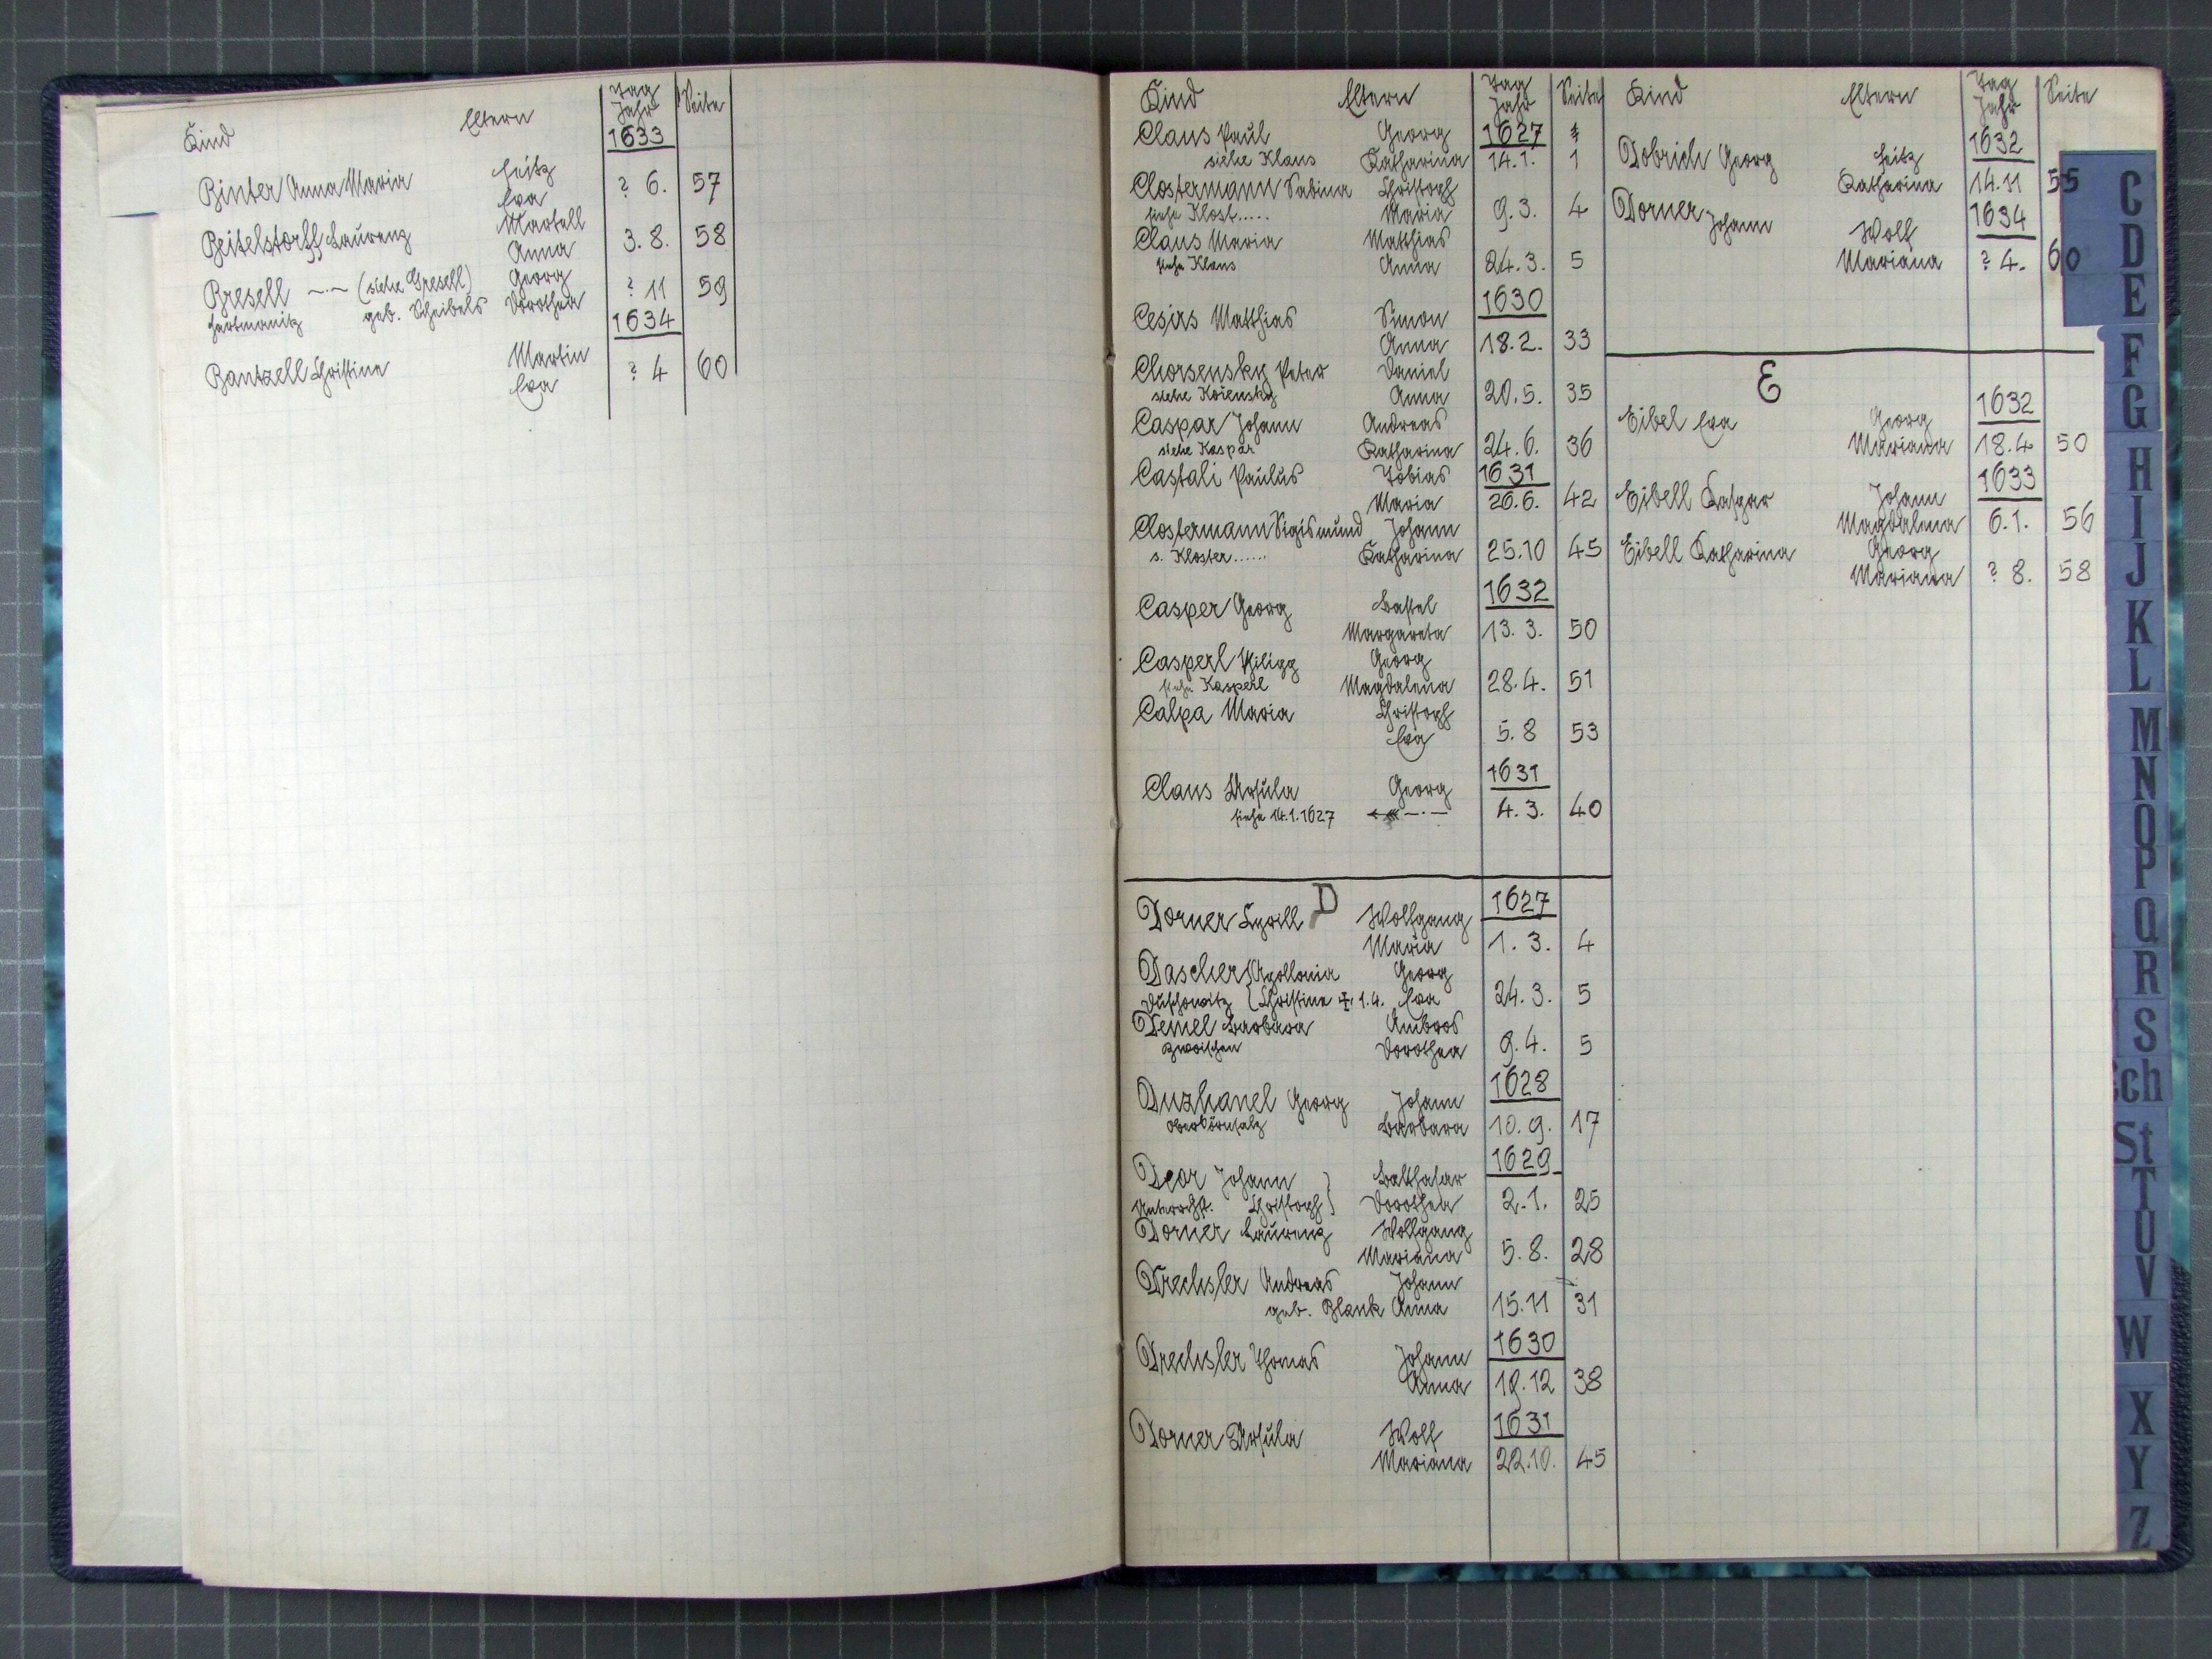 Kind Eltern Tag Jahr Seite
1633
Binter Anna Maria Veitz
Eva ? 6. 57
Beitelstorff Laurenz Martell
Anna 3. 8. 58
Bresell —·— (siehe Gresell) Georg
Hartmanitz geb. Scheibels Dorothea ? 11 59
1634
Bantzell Christine Martin
Eva ? 4 60
Kind Eltern Tag Jahr Seite
Claus Paul Georg 1627
siehe Klaus Katharina 14.1. 1
Clostermann Sabina Christoph
siehe Klost..... Maria 9.3. 4
Claus Maria Matthias
siehe Klaus Anna 24.3. 5
1630
Cesirs Matthias Simon
Anna 18.2. 33
Chorsensky Peter Daniel
siehe Anna 20.5. 35
Caspar Johann Andreas
siehe Kaspar Katharina 24.6. 36
Castali Paulus Tobias 1631
Maria 26.6. 42
Clostermann Sigismund Johann
s. Kloster...... Katharina 25.10 45
1632
Casper Georg Bastel
Margareta 13.3. 50
Casperl Philipp Georg
siehe Kasperl Magdalena 28.4. 51
Calpa Maria Christoph
Eva 5.8 53
1631
Claus Ursula Georg
siehe 14.1.1627 —·— 4.3. 40
D
1627
Dorner Cyrill Wolfgang
Maria 1.3. 4
Dascher Apollonia Georg
Duschowitz Christine ‡ 1.4. Eva 24.3. 5
Demel Barbara Ambros
Zwoischen Dorothea 9.4. 5
1628
Duzhanel Georg Johann
Oberkörnsalz Barbara 10.9. 17
1629
Deor Johann } Balthasar
Christoph } Dorothea 2.1. 25
Dorner Laurenz Wolfgang
Mariana 5.8. 28
Drechsler Andreas Johann
geb. Blank Anna 15.11 31
1630
Drechsler Thomas Johann
Anna 19.12 38
1631
Dorner Ursula Wolf
Mariana 22.10. 45
Kind Eltern Tag Jahr Seite
1632
Dobrich Georg Veitz
Katharina 14.11 55
Dorner Johann Wolf 1634
Mariana ? 4. 60
E
1632
Eibel Eva Georg
Mariana 18.4 50
1633
Eibell Kaspar Johann
Magdalena 6.1. 56
Eibell Katharina Georg
Mariana ? 8. 58
C
D
E
F
G
H
I
J
K
L
M
N
O
P
Q
R
S
Sch
St
T
U
V
W
X
Y
Z